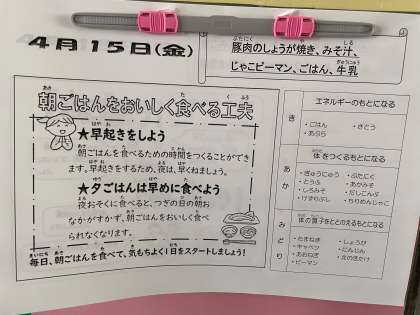 4月15日(金)
豚肉のしょうが焼き、みそ汁、
じゃこピーマン、ごはん、牛乳
朝ごはんをおいしく食べる工夫
★早起きをしよう
朝ごはんを食べるための時間をつくることができ
ます。早起きをするため、夜は、早くねましょう。
★夕ごはんは早めに食べよう
夜おそくに食べると、つぎの日の朝お
なかがすかず、朝ごはんをおいしく食べ
られなくなります。
毎日、朝ごはんを食べて、気もちよく1日をスタートしましょう!
き
エネルギーのもとになる
・ごはん ・さとう
・あぶら
あか
体をつくるもとになる
・ぎゅうにゅう ・ぶたにく
・とうふ ・あかみそ
・しろみそ ・だしこんぶ
・けずりぶし ・ちりめんじゃこ
みどり
体の調子をととのえるもとになる
・たまねぎ ・しょうが
・キャベツ ・にんじん
・あおねぎ ・えのきたけ
・ピーマン